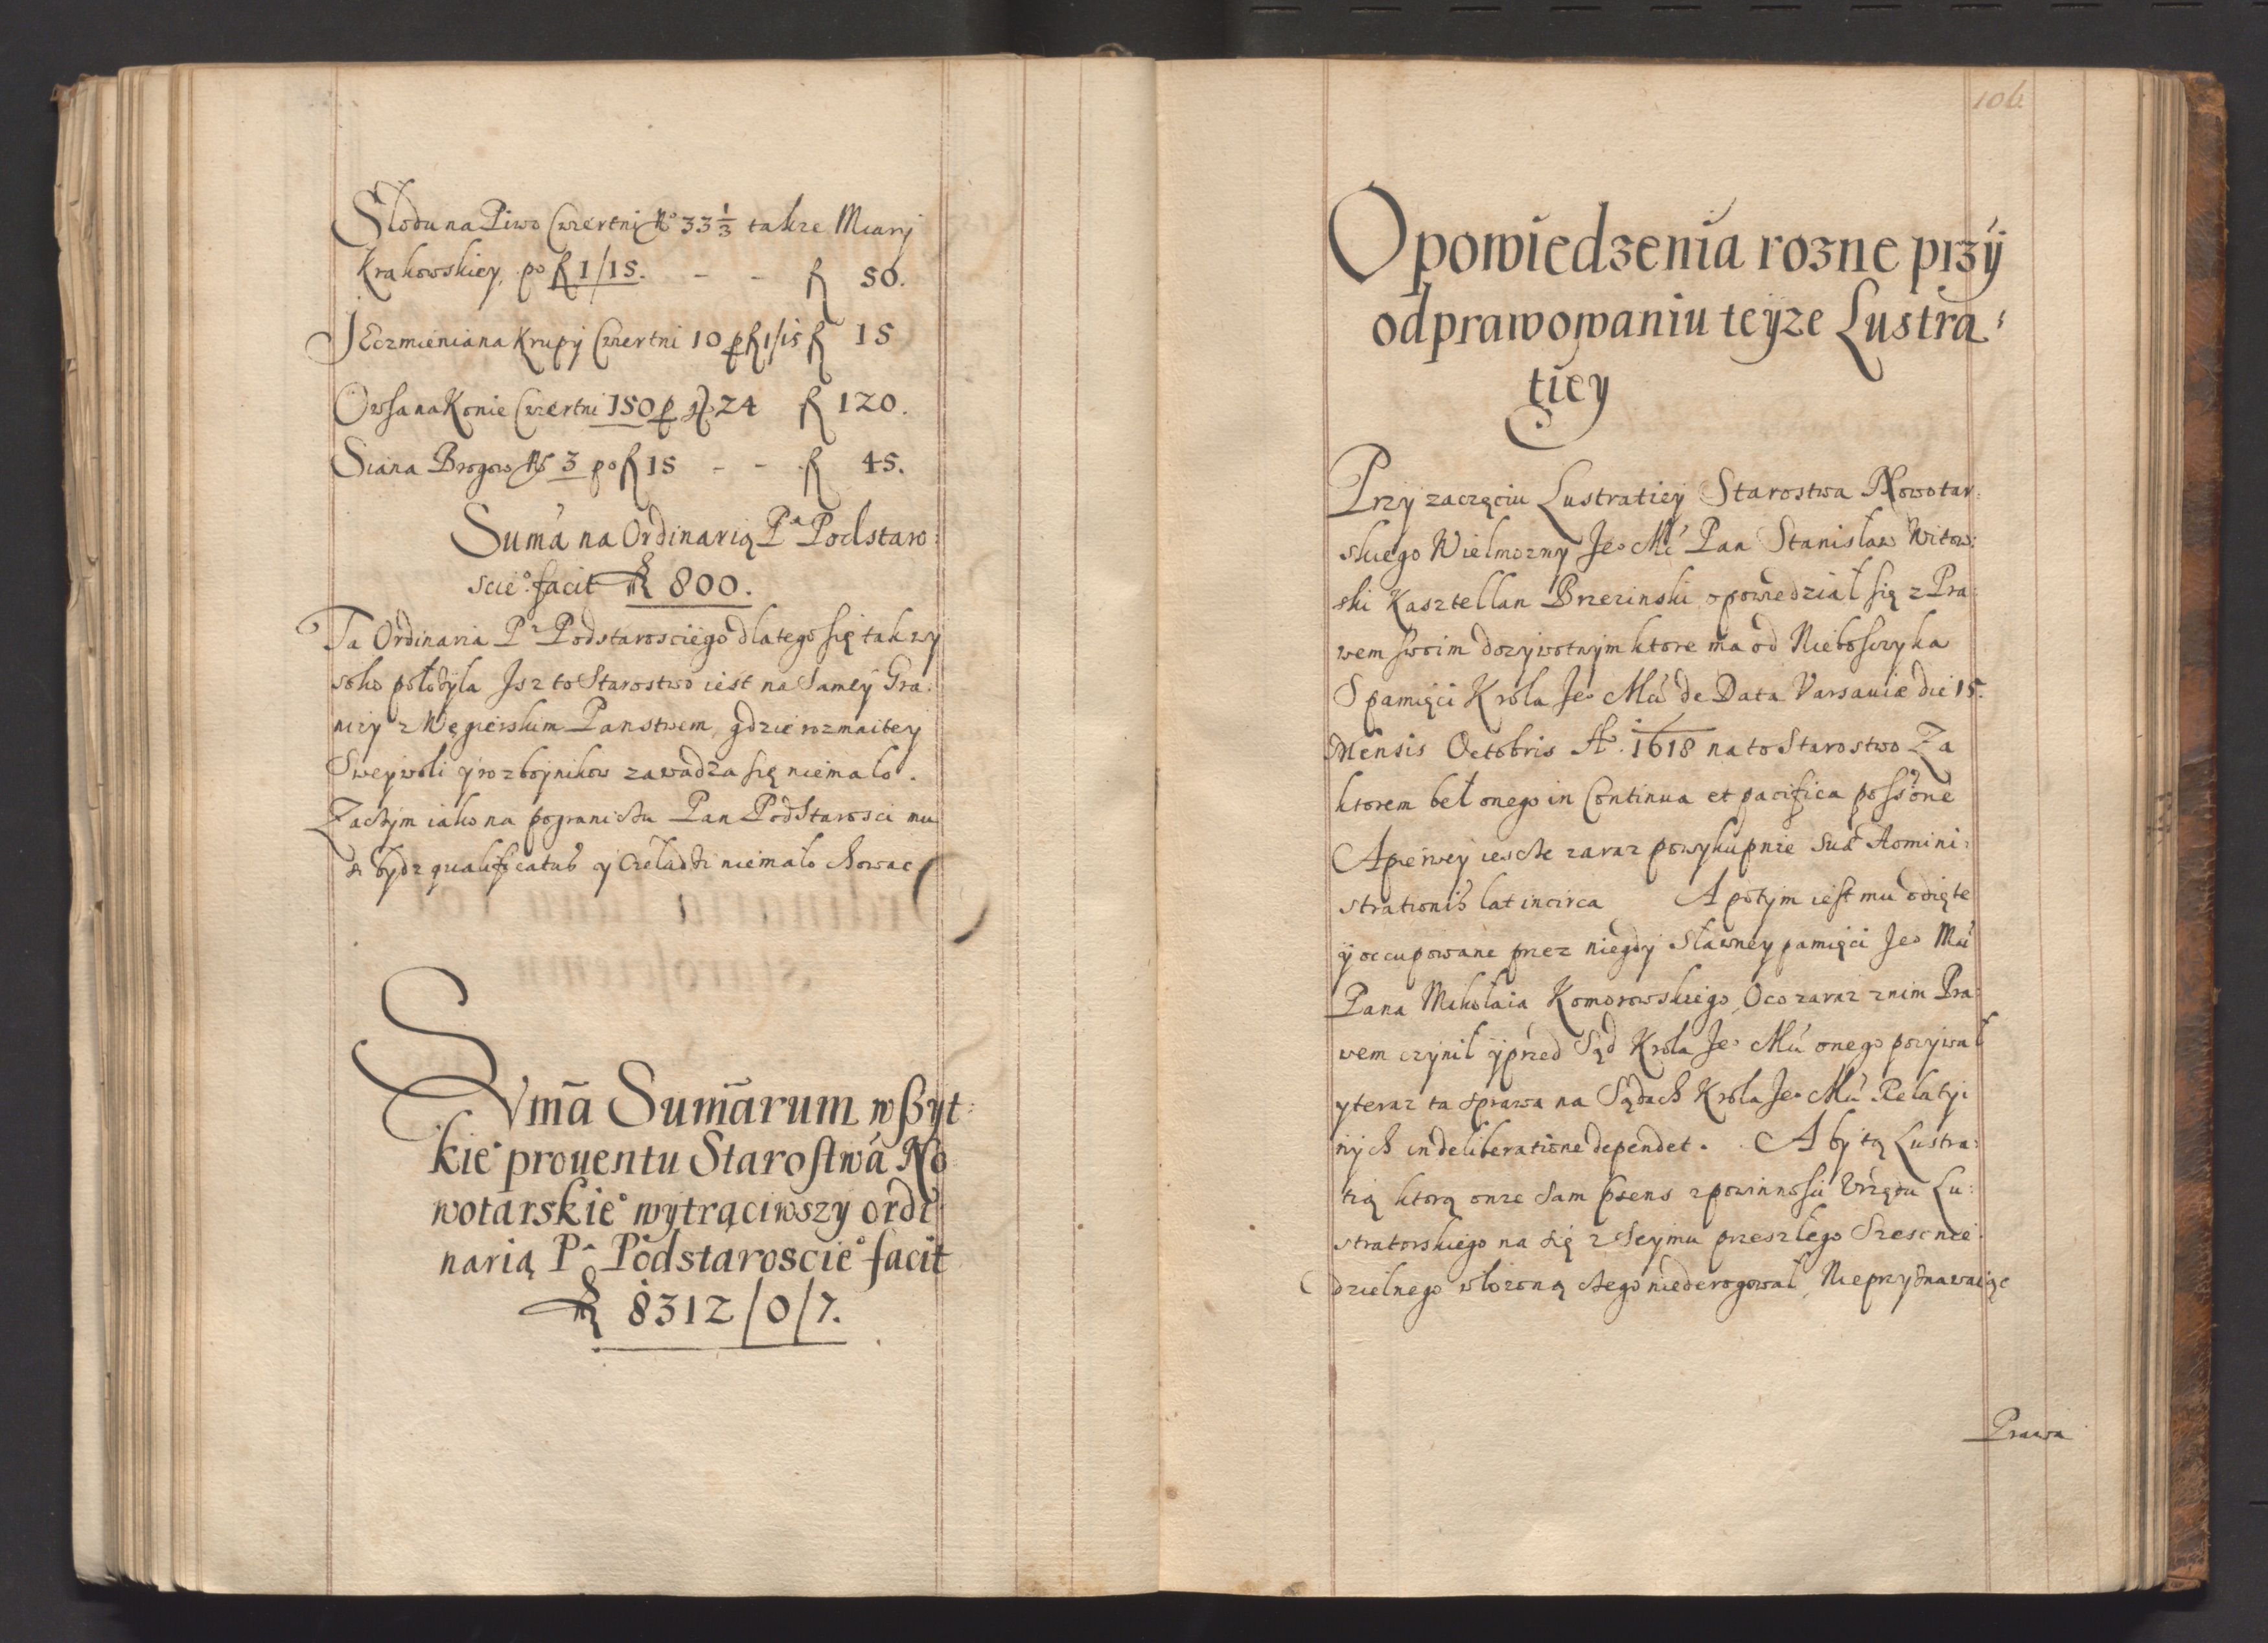 Słodu na Piwo Czwertni No 33 1/3 takze Miary
Krakowskiey, po fl 1/15. - - fl 50.
JEczmienia na Krupy Czwertni 10 p fl 1/15 fl 15
Owsa na Konie Czwertni 150 p gr 24 fl 120.
Siana Brogow No 3 po fl 15 - - fl 45.
Suma na Ordinarią Pa Podstaro:
scieo. facit fl 800.
Ta Ordinaria Pa Podstarosciego dlatego się tak wy
soko położyla Jsz to Starostwo iest na Samey Gra:
nicy z Węgierskim Panstwem, gdzie rozmaitey
Sweywoli y rozbojnikow zawadza się niemało.
Zaczym iako na pograniczu Pan PodStarosci mu
si bydz qualificatus y Czeladzi niemało chowac
Sum̃a Sum̃arum wszyt:
kieo prouentu Starostwa No
wotarskieo wytrąciwszy ordi
narią Pa Podstaroscieo facit
fl 8312/0/7.
106
Opowiedzenia rozne przy
odprawowaniu teyze Lustra:
tiey
Przy zaczęciu Lustratiey Starostwa Nowotar:
skiego Wielmozny Jeo Mć Pan Stanisław Witow:
ski Kasztellan Brzezinski opowiedział się z Pra:
wem swoim dozywotnym ktore ma od Nieboszczyka
S pamięci Krola Jeo Mći de Data Varsauiæ die 15.
Mensis Octobris Ao. 1618 na to Starostwo Za
ktorem beł onego in Continua et pacifica possone
A pierwey iescze zaraz powykupnie suæ Admini:
strationis lat incirca A potym iest mu odięte
y occupowane przez niegdy Sławney pamięci Jeo Mći
Pana Mikołaia Komorowskiego, Oco zaraz znim Pra:
wem czynił y przed Sąd Krola Jeo Mći onego pozywał
y teraz ta sprawa na Sądach Krola Jeo Mći Relatyi
nych in deliberatione dependet. A by tą Lustra:
tią ktorą onze Sam psens z powinnosci Urzędu Lu:
stratorskiego na się z Seymu przeszłego Szescnie:
dzielnego włozoną czego niederogował, Nieprzyznawaiąc
Prawa